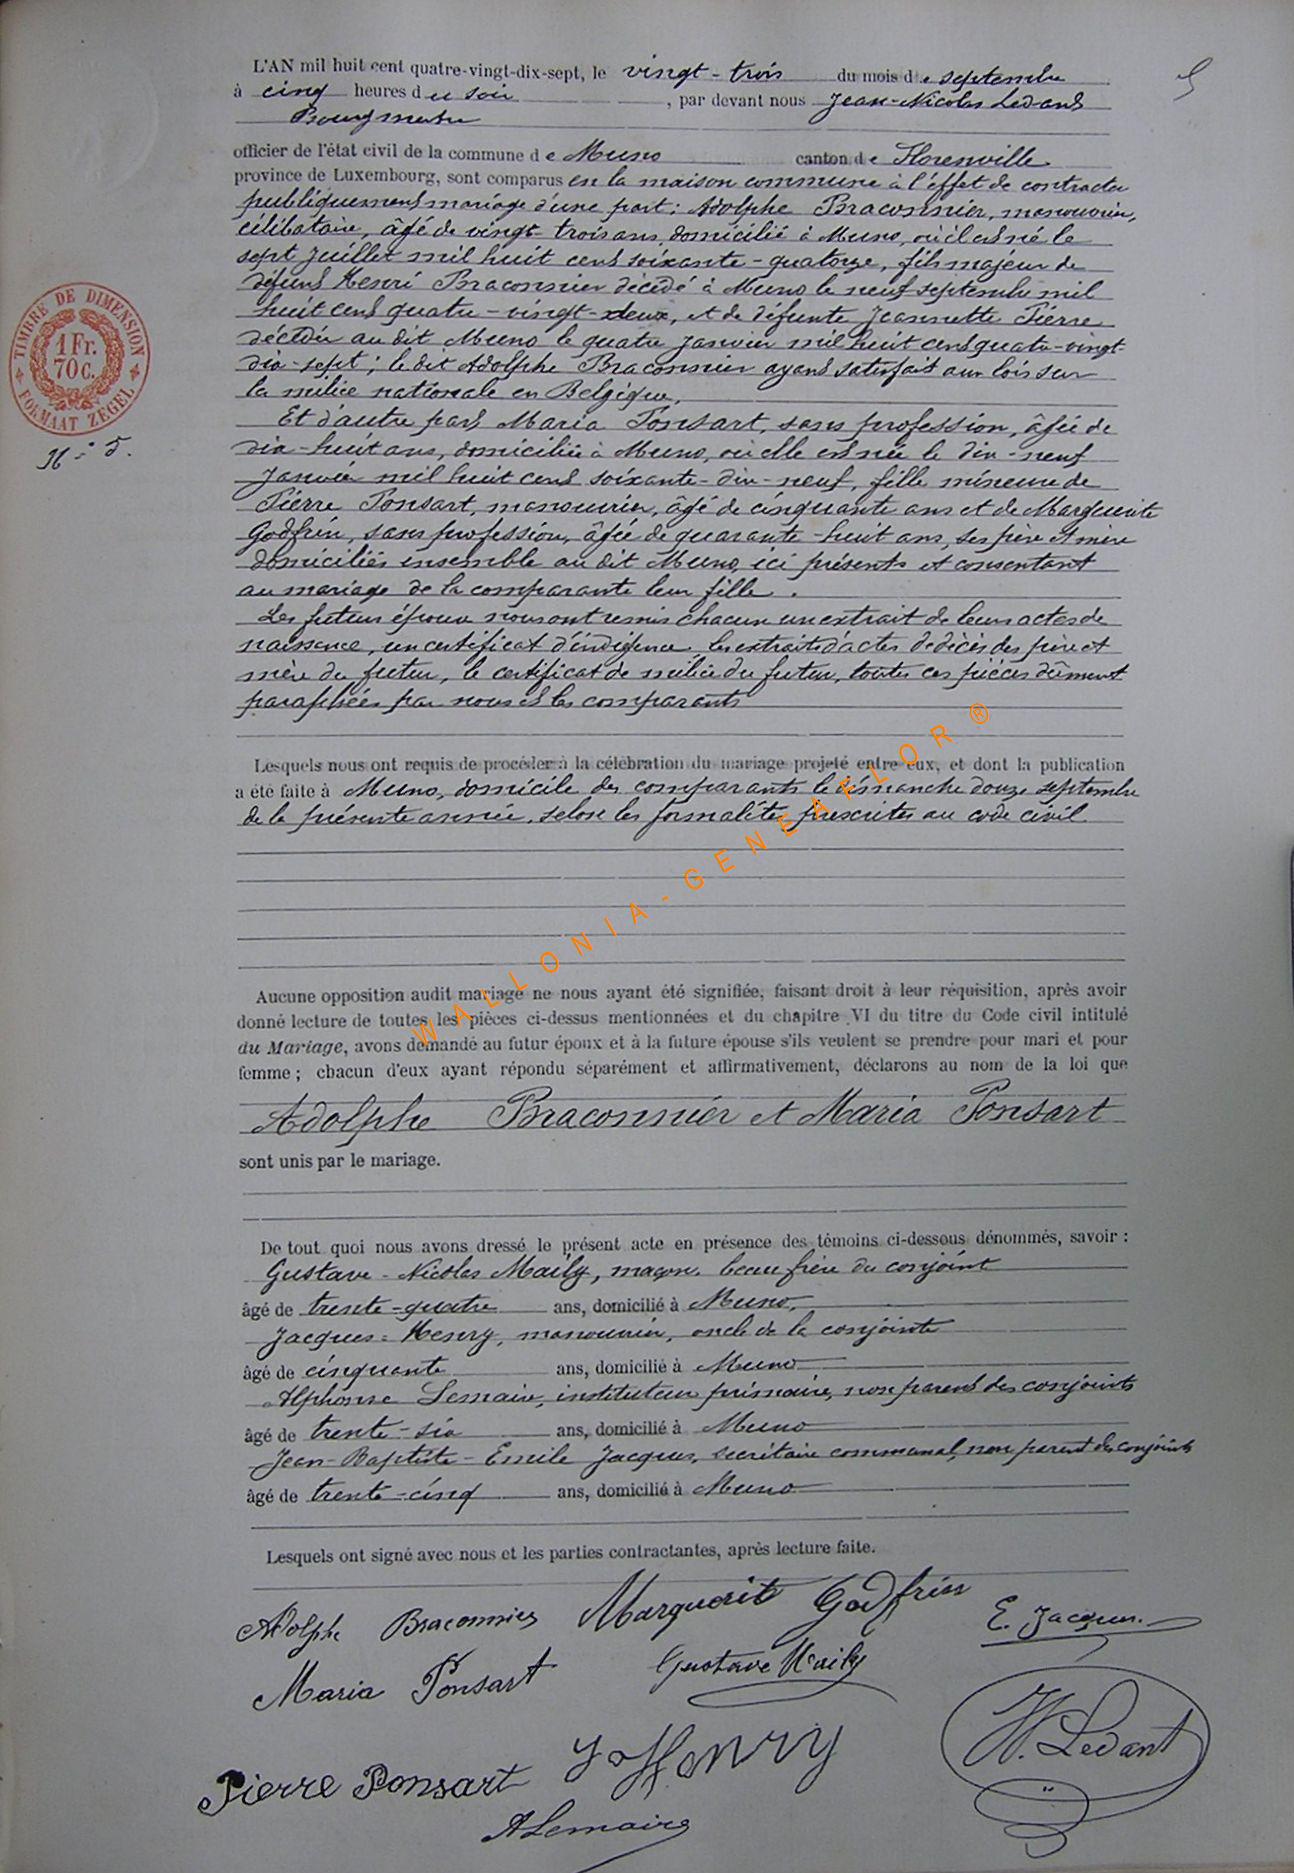 L'AN mil huit cent quatre-vingt-dix-sept, le vingt-trois du mois de septembre
à cinq heures du soir, par devant nous Jean-Nicolas Ledant
Bourgmestre
officier de l'état civil de la commune de Muno canton de Florenville
province de Luxembourg, sont comparus en la maison commune à l'effet de contracter
publiquement mariage d'une part: Adolphe Braconnier, manouvrier,
célibataire, âgé de vingt-trois ans, domicilié à Muno, où il est né le
sept Juillet mil huit cent soixante-quatorze, fils majeur de
défunt Henri Braconnier décédé à Muno le neuf septembre mil
huit cent quatre-vingt-deux, et de défunte Jeannette Pierre
décédée au dit Muno le quatre janvier mil huit cent quatre-vingt
dix-sept; le dit Adolphe Braconnier ayant satisfait aux lois sur
la milice nationale en Belgique.
Et d'autre part Maria Ponsart, sans profession, âgée de
dix-huit ans, domiciliée à Muno, où elle est née le dix-neuf
Janvier mil huit cent soixante-dix-neuf, fille mineure de
Pierre Ponsart, manouvrier, âgé de cinquante ans et de Marguerite
Godfrin, sans profession, âgée de quarante-huit ans, ses père et mère
domiciliés ensemble au dit Muno, ici présents et consentant
au mariage de la comparante leur fille.
Les futurs époux nous ont remis chacun un extrait de leurs actes de
naissance, un certificat d'indigence, les extraits d'actes de décès des père et
mère du futur, le certificat de milice du futur, toutes ces pièces dûment
paraphées par nous et les comparants
Lesquels nous ont requis de procéder à la célébration du mariage projeté entre eux, et dont la publication
a été faite à Muno, domicile des comparants le dimanche douze septembre
de la présente année, selon les formalités prescrites au code civil
Aucune opposition audit mariage ne nous ayant été signifiée, faisant droit à leur réquisition, après avoir
donné lecture de toutes les pièces ci-dessus mentionnées et du chapitre VI du titre du Code civil intitulé
du Mariage, avons demandé au futur époux et à la future épouse s'ils veulent se prendre pour mari et pour
femme; chacun d'eux ayant répondu séparément et affirmativement, déclarons au nom de la loi que
Adolphe Braconnier et Maria Ponsart
sont unis par le mariage.
De tout quoi nous avons dressé le présent acte en présence des témoins ci-dessous dénommés, savoir:
Gustave-Nicolas Maily, maçon, beau frère du conjoint
âgé de trente-quatre ans, domicilié à Muno,
Jacques-Henry, manouvrier, oncle de la conjointe
âgé de cinquante ans, domicilié à Muno
Alphonse Lemaire, instituteur primaire, non parent des conjoints
âgé de trente-six ans, domicilié à Muno
Jean-Baptiste-Emile Jacques, secrétaire communal, non parent des conjoints
âgé de trente-cinq ans, domicilié à Muno
Lesquels ont signé avec nous et les parties contractantes, après lecture faite.
Adolphe Braconnier Marguerite Godfrin E. Jacques
Maria Ponsart Gustave Maily
Pierre Ponsart J Henry N. Ledant
A Lemaire
TIMBRE DE DIMENSION
1 Fr.
70 C.
FORMAAT ZEGEL
N° 5.
WALLONIA-GENEAFLOR®